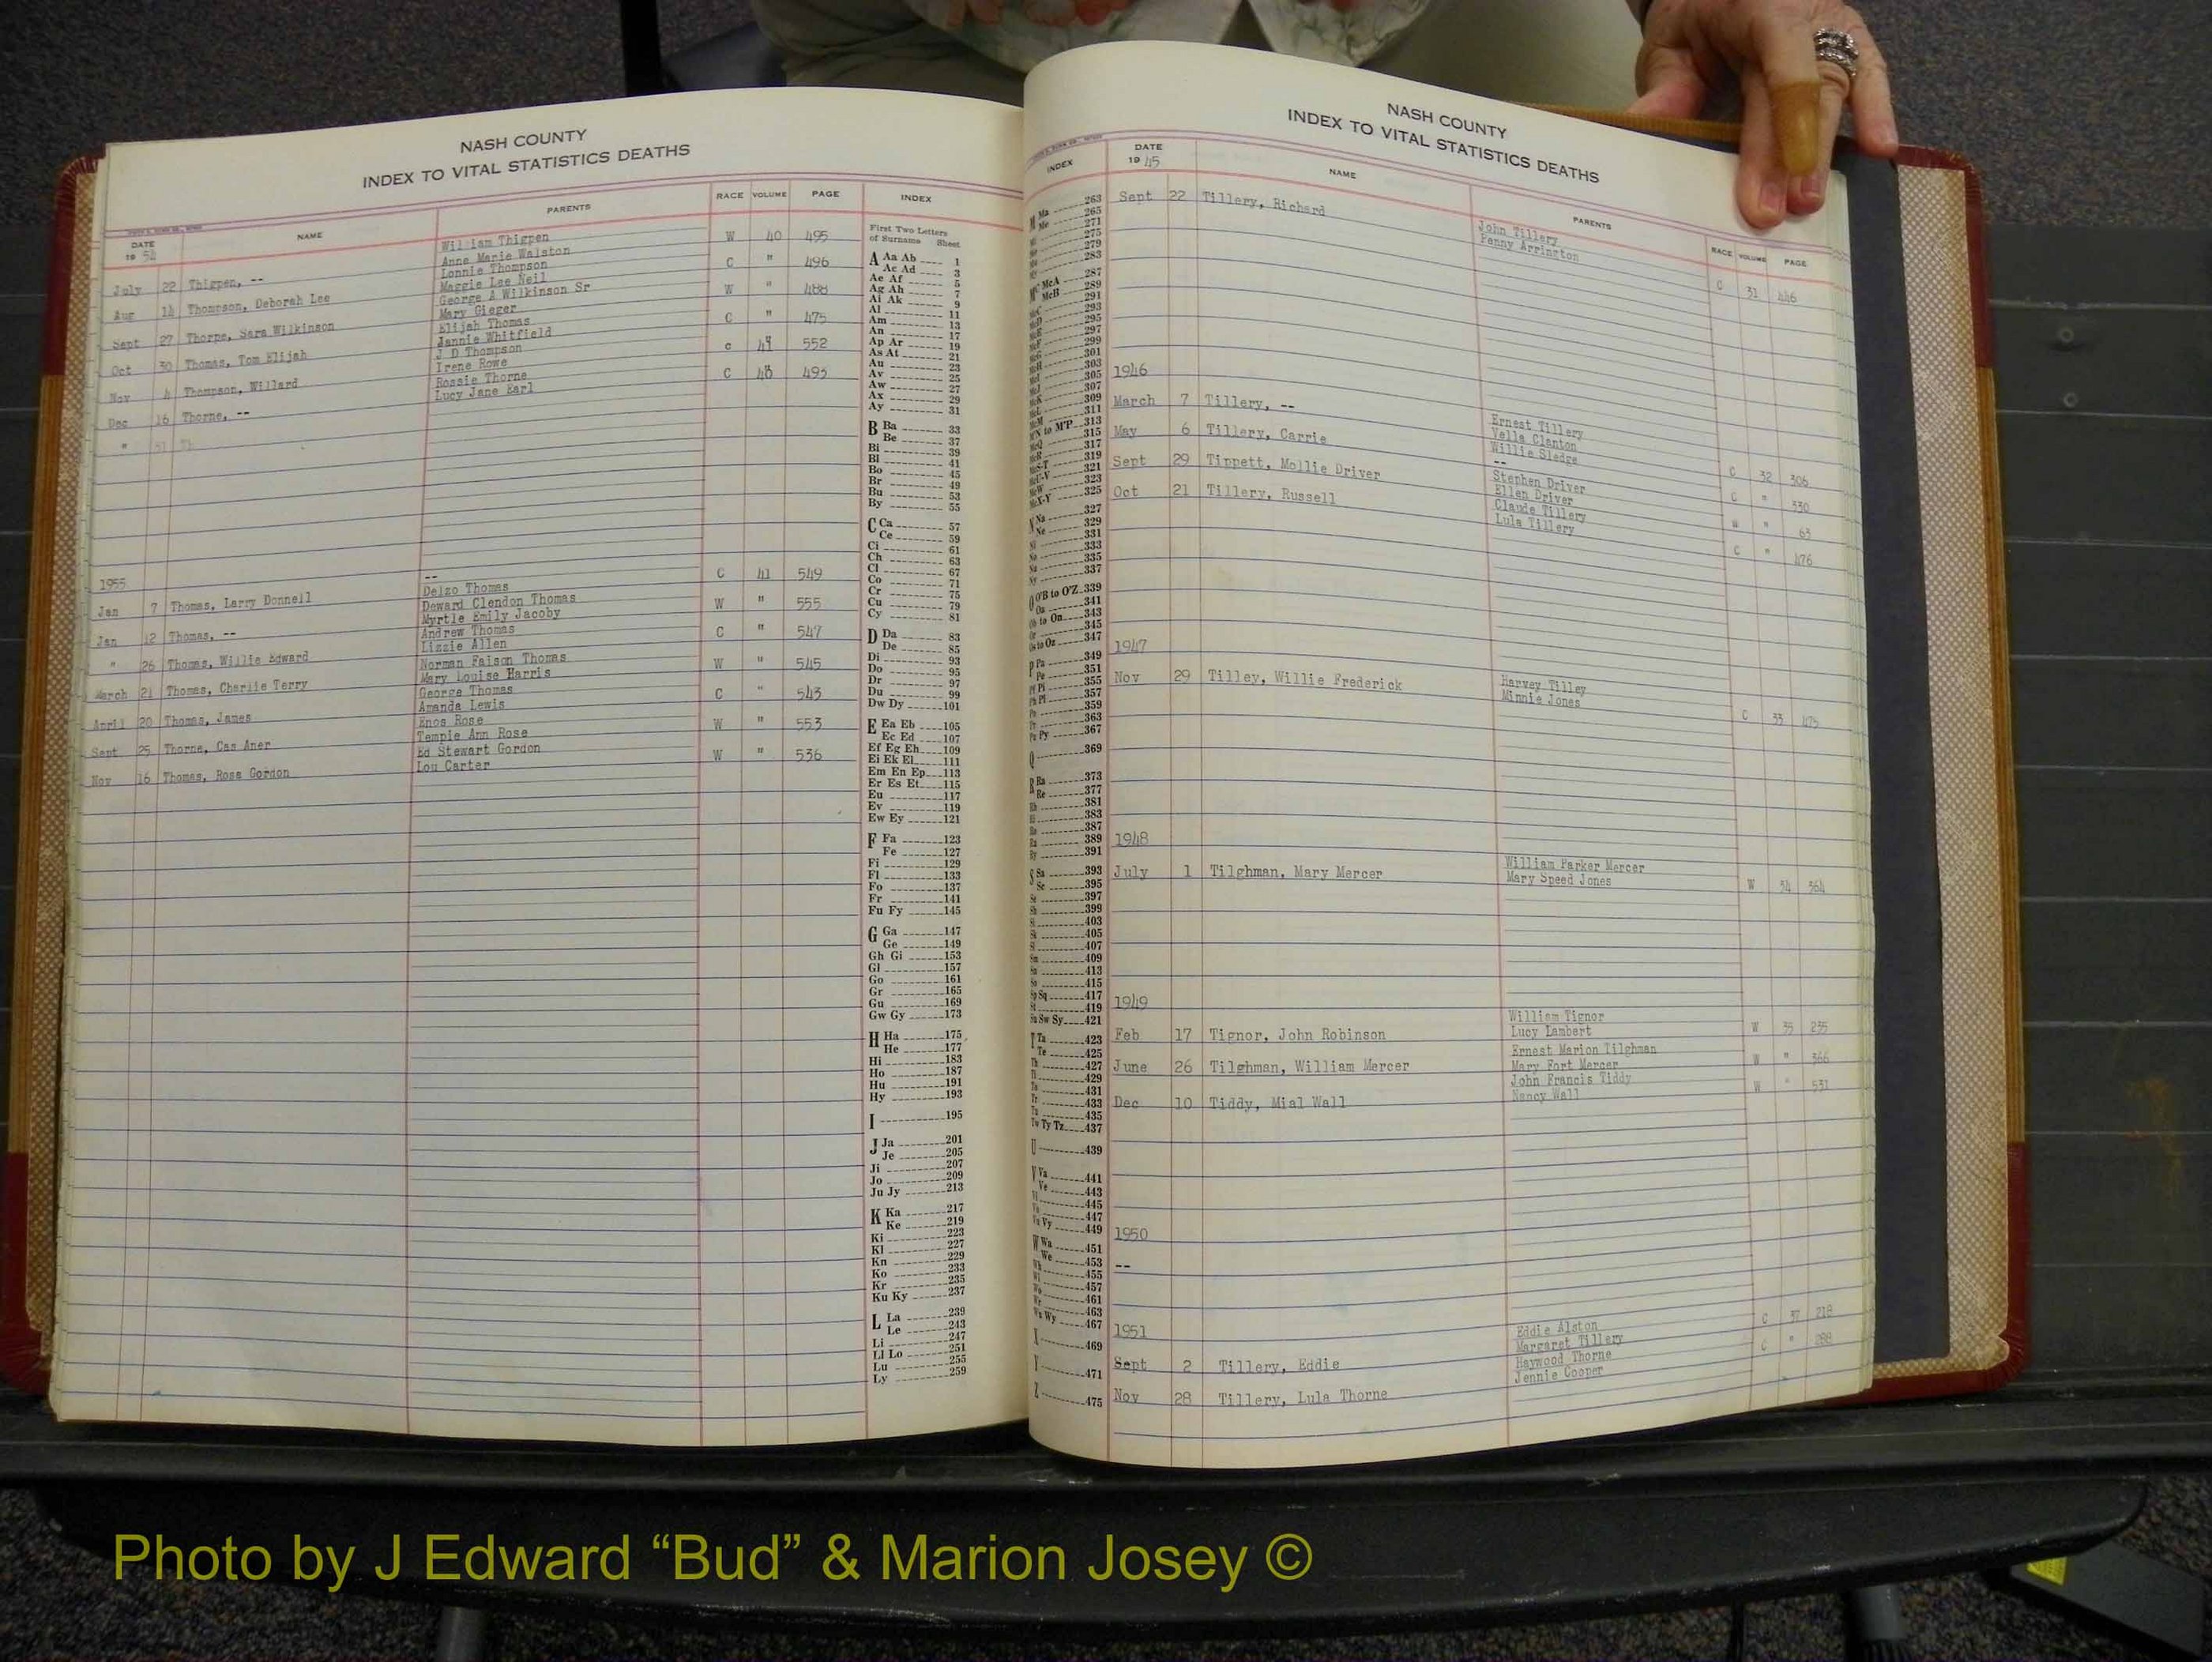 NASH COUNTY
INDEX TO VITAL STATISTICS DEATHS
DATE
19 54
NAME
PARENTS
RACE VOLUME PAGE
July 22 Thigpen, -- William Thigpen W 40 495
Anne Marie Walston
Aug 14 Thompson, Deborah Lee Lonnie Thompson C " 496
Maggie Lee Neil
Sept 27 Thorpe, Sara Wilkinson George A Wilkinson Sr W " 488
Mary Gieger
Oct 30 Thomas, Tom Elijah Elijah Thomas C " 475
Jannie Whitfield
Nov 4 Thompson, Willard J D Thompson c 552
Irene Rowe
Dec 16 Thorne, -- Rossie Thorne C 495
Lucy Jane Earl
"
1955
Jan 7 Thomas, Larry Donnell -- C 41 549
Delzo Thomas
Jan 12 Thomas, -- Deward Clendon Thomas W " 555
Myrtle Emily Jacoby
" 26 Thomas, Willie Edward Andrew Thomas C " 547
Lizzie Allen
March 21 Thomas, Charlie Terry Norman Faison Thomas W " 545
Mary Louise Harris
April 20 Thomas, James George Thomas C " 543
Amanda Lewis
Sept 25 Thorne, Cas Aner Enos Rose W " 553
Temple Ann Rose
Nov 16 Thomas, Rosa Gordon Ed Stewart Gordon W " 536
Lou Carter
INDEX
First Two Letters
of Surname Sheet
A Aa Ab 1
Ac Ad 3
Ae Af 5
Ag Ah 7
Ai Ak 9
Al 11
Am 13
An 17
Ap Ar 19
As At 21
Au 23
Av 25
Aw 27
Ax 29
Ay 31
B Ba 33
Be 37
Bi 39
Bl 41
Bo 45
Br 49
Bu 53
By 55
C Ca 57
Ce 59
Ci 61
Ch 63
Cl 67
Co 71
Cr 75
Cu 79
Cy 81
D Da 83
De 85
Di 93
Do 95
Dr 97
Du 99
Dw Dy 101
E Ea Eb 105
Ec Ed 107
Ef Eg Eh 109
Ei Ek El 111
Em En Ep 113
Er Es Et 115
Eu 117
Ev 119
Ew Ey 121
F Fa 123
Fe 127
Fi 129
Fl 133
Fo 137
Fr 141
Fu Fy 145
G Ga 147
Ge 149
Gh Gi 153
Gl 157
Go 161
Gr 165
Gu 169
Gw Gy 173
H Ha 175
He 177
Hi 183
Ho 187
Hu 191
Hy 193
I 195
J Ja 201
Je 205
Ji 207
Jo 209
Ju Jy 213
K Ka 217
Ke 219
Ki 223
Kl 227
Kn 229
Ko 233
Kr 235
Ku Ky 237
L La 239
Le 243
Li 247
Ll Lo 251
Lu 255
Ly 259
NASH COUNTY
INDEX TO VITAL STATISTICS DEATHS
INDEX
M Ma 263
Me 265
271
275
279
283
287
McA 289
McB 291
293
295
297
299
301
303
305
307
309
311
M'N to M'P 313
315
317
319
321
323
325
N Na 327
Ne 329
331
333
335
337
O O'B to O'Z 339
341
343
345
347
P Pa 349
Pe 351
355
357
359
363
Pu Py 367
Q 369
R Ra 373
Re 377
381
383
387
389
391
S Sa 393
Se 395
397
399
403
405
407
409
413
415
Sp Sq 417
419
Su Sw Sy 421
T Ta 423
Te 425
427
429
431
433
435
Tw Ty Tz 437
U 439
V Va 441
Ve 443
445
447
449
W Wa 451
We 453
455
457
461
463
467
469
Y 471
Z 475
DATE
19 45
NAME
PARENTS
RACE VOLUME PAGE
Sept 22 Tillery, Richard John Tillery C 31 446
Penny Arrington
1946
March 7 Tillery, -- Ernest Tillery C 32 306
Vella Clanton
May 6 Tillery, Carrie Willie Sledge C " 330
--
Sept 29 Tippett, Mollie Driver Stephen Driver W " 63
Ellen Driver
Oct 21 Tillery, Russell Claude Tillery C " 476
Lula Tillery
1947
Nov 29 Tilley, Willie Frederick Harvey Tilley C 33 475
Minnie Jones
1948
July 1 Tilghman, Mary Mercer William Parker Mercer W 34 364
Mary Speed Jones
1949
Feb 17 Tignor, John Robinson William Tignor W 35 235
Lucy Lambert
June 26 Tilghman, William Mercer Ernest Marion Tilghman W " 366
Mary Fort Mercer
Dec 10 Tiddy, Mial Wall John Francis Tiddy W " 531
Nancy Wall
1950
--
1951
Sept 2 Tillery, Eddie Eddie Alston C 37 218
Margaret Tillery
Nov 28 Tillery, Lula Thorne Haywood Thorne C " 288
Jennie Cooper
Photo by J Edward “Bud” & Marion Josey ©